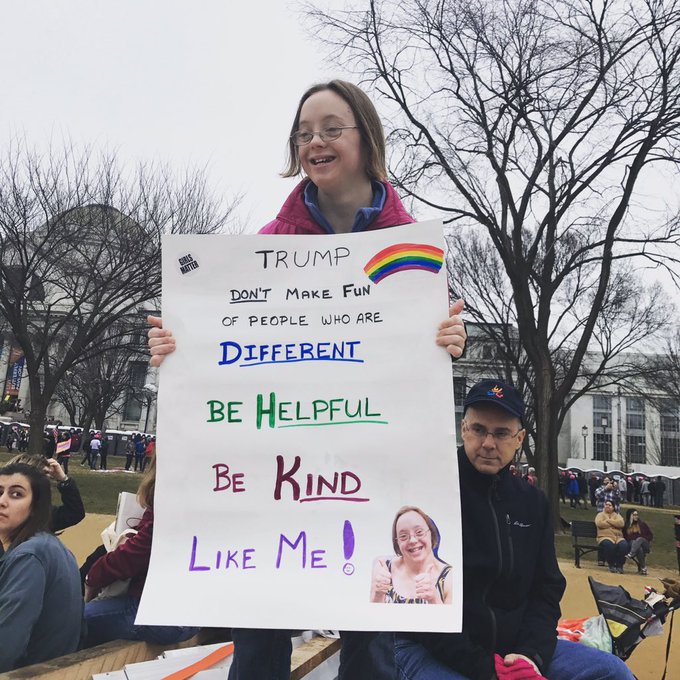 GIRLS
MATTER
TRUMP
DON'T MAKE FUN
OF PEOPLE WHO ARE
DIFFERENT
BE HELPFUL
BE KIND
LIKE ME!